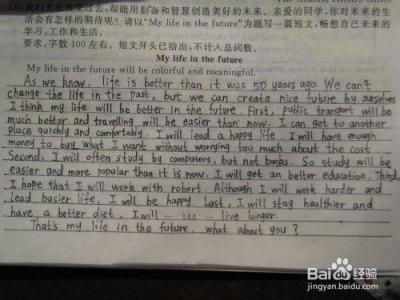 我们无法改变过去,却能用勤奋和智慧创造美好的未来。亲爱的同学,你对未来的生
活会有怎样的期待呢?请以“My life in the future”为题写一篇短文,畅想自己未来的
学习、工作和生活。
要求:字数100左右,短文开头已给出,不计入总词数。
My life in the future
My life in the future will be colorful and meaningful.
As we know, life is better than it was 50 years ago. We can't
change the life in the past, but we can create nice future by ourselves
I think my life will be better in the future. First, public transport will be
much better and travelling will be easier than now. I can get to another
place quickly and comfortably. I will lead a happy life. I will have enough
money to buy what I want without worrying too much about the cost
Second, I will often study by computers, but not books. So study will be
easier and more popular than it is now. I will get an better education. Third,
I hope that I will work with robert. Although I will work harder and
lead busier life, I will be happy. Last, I will stay healthier and
have a better diet, I will live longer.
That's my life in the future, what about you?
Baidu 经验
jingyan.baidu.com